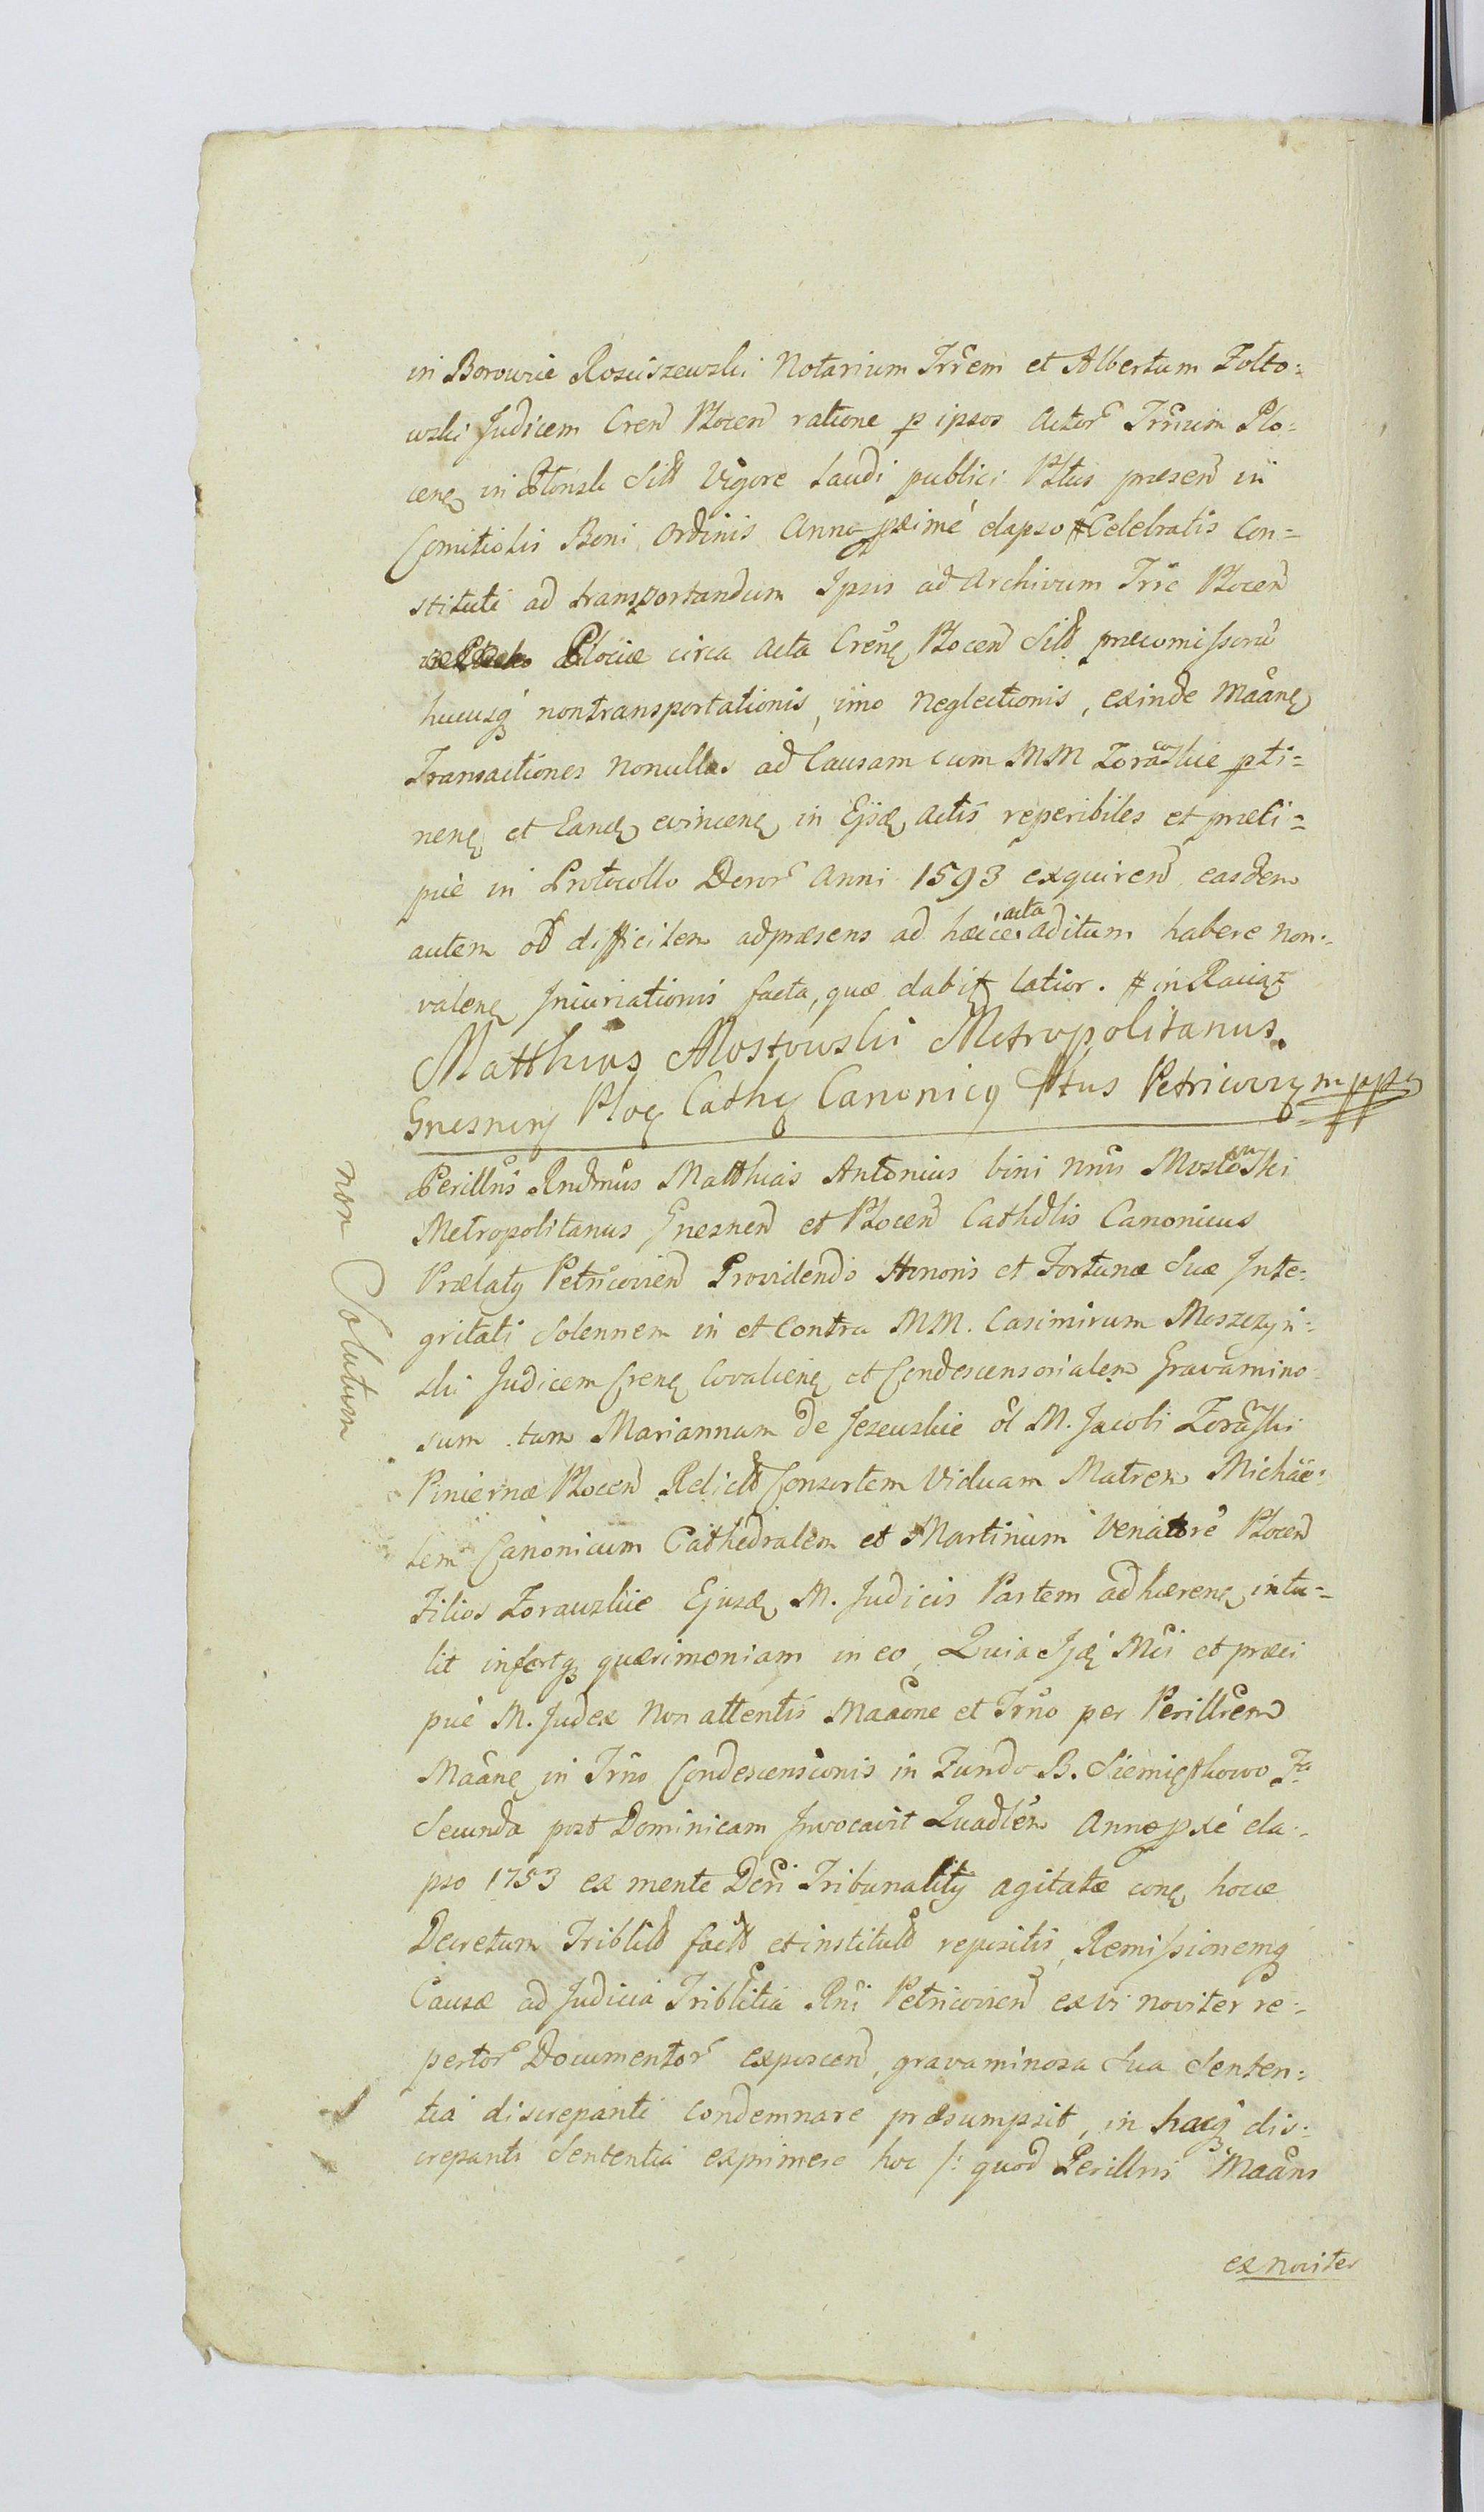 in Borowice Rosciszewski Notarium Trrem et Albertum Zolto=
wski Judicem Cren Plocen ratione p ipsos Actor Trrium Plo=
cen in Plonsk Sitt Vigore Laudi publici Pltus præsen in
Comitiolis Boni Ordinis Anno pximé elapso # Celebratis Con=
stituti ad transportandum Ipsis ad Archivum Trrc Plocen
Plociæ circa Acta Cren Plocen Sitt præcomissoru
hucusq nontransportationis, imo neglectionis, exinde Maane
Transactiones nonullas ad Causam cum MM Zorawskie pti=
nen et Eand evincen in Ejsd Actis reperibiles et præci=
puè in Protocollo Decror Anni 1593 exquiren easdem
autem ob difficilem adpræsens ad hæcce acta aditum habere non=
valen Iniuriationis facta, quæ dabit latior. # in Raciąz
Matthias Mostowski Metropolitanus.
Gnesnen Ploc Cath Canonicq Pltus Petricovien mppa
Perillris Rndmus Matthias Antonius bini nnis Mostowski
Metropolitanus Gnesnen et Plocen Cathdlis Canonicus
Prælatq Petricovien Providendo Honoris et Fortunæ Suæ Inte=
gritati Solennem in et Contra MM. Casimirum Moszczyn=
ski Judicem Cren Covalien et Condescensorialem Gravamino=
sum tum Mariannam de Jezewskie ol M. Jacobi Zorawski
Pincernæ Plocen Relict Consortem Viduam Matrem Michae=
lem Canonicum Cathedralem et Martinum Venatore Plocen
Filios Zorawskie Ejusd M. Judicis Partem adhæren intu=
lit infertq quærimoniam in eo, Quia Ijd Mci et præci
puè M. Judex Non attentis Maaone et Trno per Perillrem
Maane in Trno Condescensionis in Fundo B. Siemiątkowo Fa
Secunda post Dominicam Invocavit Quadlem Anno pxé ela=
pso 1753 ex mente Dcri Tribunalitij agitatæ conq hocce
Decretum Triblit fact et institut repositis, Remissionemq
Causæ ad Judicia Triblitia Rni Petricovien ex vi noviter re=
pertor Documentor exposcen, gravaminosa Sua Senten=
tia discrepanti Condemnare præsumpsit, in hacq dis=
crepanti Sententia exprimere hoc /: quod Perillris Maans
ex noviter
non Solutum